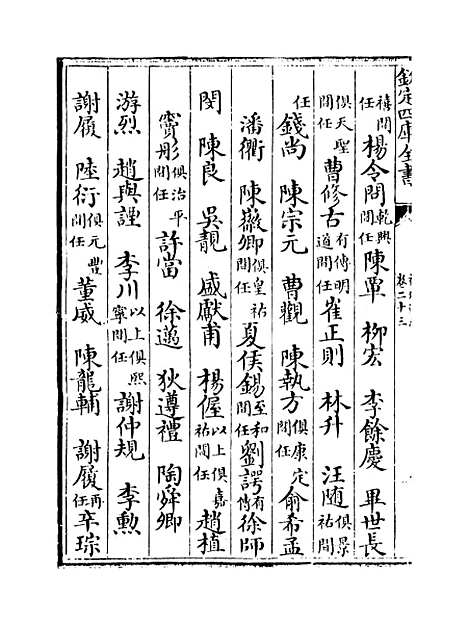 欽定四庫全書
卷二十三
禧間任 楊令問 乾興間任 陳覃 柳宏 李餘慶 畢世長
俱天聖間任 曹修古 有傳明道間任 崔正則 林升 汪随 俱景祐間
任 錢尚 陳宗元 曹觀 陳執方 俱康定間任 俞希孟
潘衢 陳巖卿 俱皇祐間任 夏侯錫 至和間任 劉諤 有傳 徐師
閔 陳良 吳靚 盛獻甫 楊偓 以上俱嘉祐間任 趙植
竇彤 俱治平間任 許當 徐邁 狄遵禮 陶舜卿
游烈 趙與諲 李川 以上俱熙寧間任 謝仲規 李勲
謝履 陸衍 俱元豐間任 董威 陳龍輔 謝履 再任 辛琮